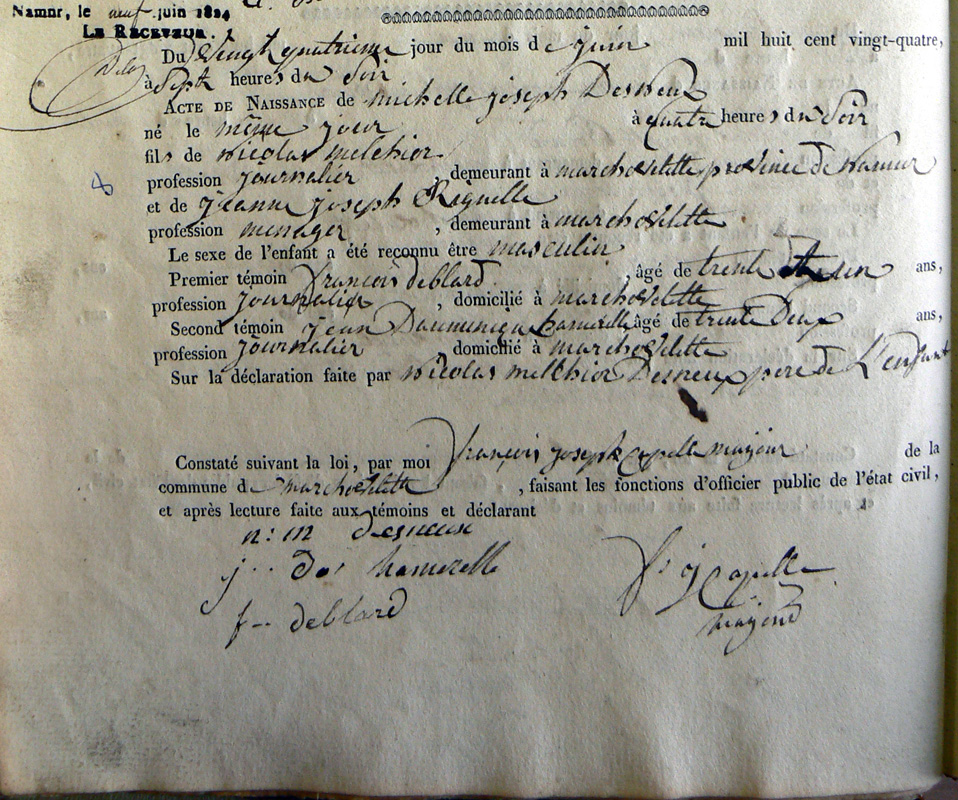 Namur, le neuf juin 1824
LE RECEVEUR.
Du Vingt quatrieme jour du mois de juin mil huit cent vingt-quatre,
à Sept heures du Soir
ACTE DE NAISSANCE de michelle joseph Desneux
né le même jour à quatre heures du Soir
fils de nicolas melchior
profession journalier, demeurant à marchovelette province de namur
et de jeanne joseph Riguelle
profession menager, demeurant à marchovelette
Le sexe de l'enfant a été reconnu être masculin
Premier témoin françois deblard, âgé de trente ans,
profession journalier, domicilié à marchovelette
Second témoin jean âgé de trente Deux ans,
profession journalier domicilié à marchovelette
Sur la déclaration faite par nicolas melchior Desneux pere de L'enfant
Constaté suivant la loi, par moi françois joseph Capelle mayeur de la
commune de marchovelette, faisant les fonctions d'officier public de l'état civil,
et après lecture faite aux témoins et déclarant
n: m desneux
j.. do: hamerelle
f.. deblard
f: j Capelle
mayeur